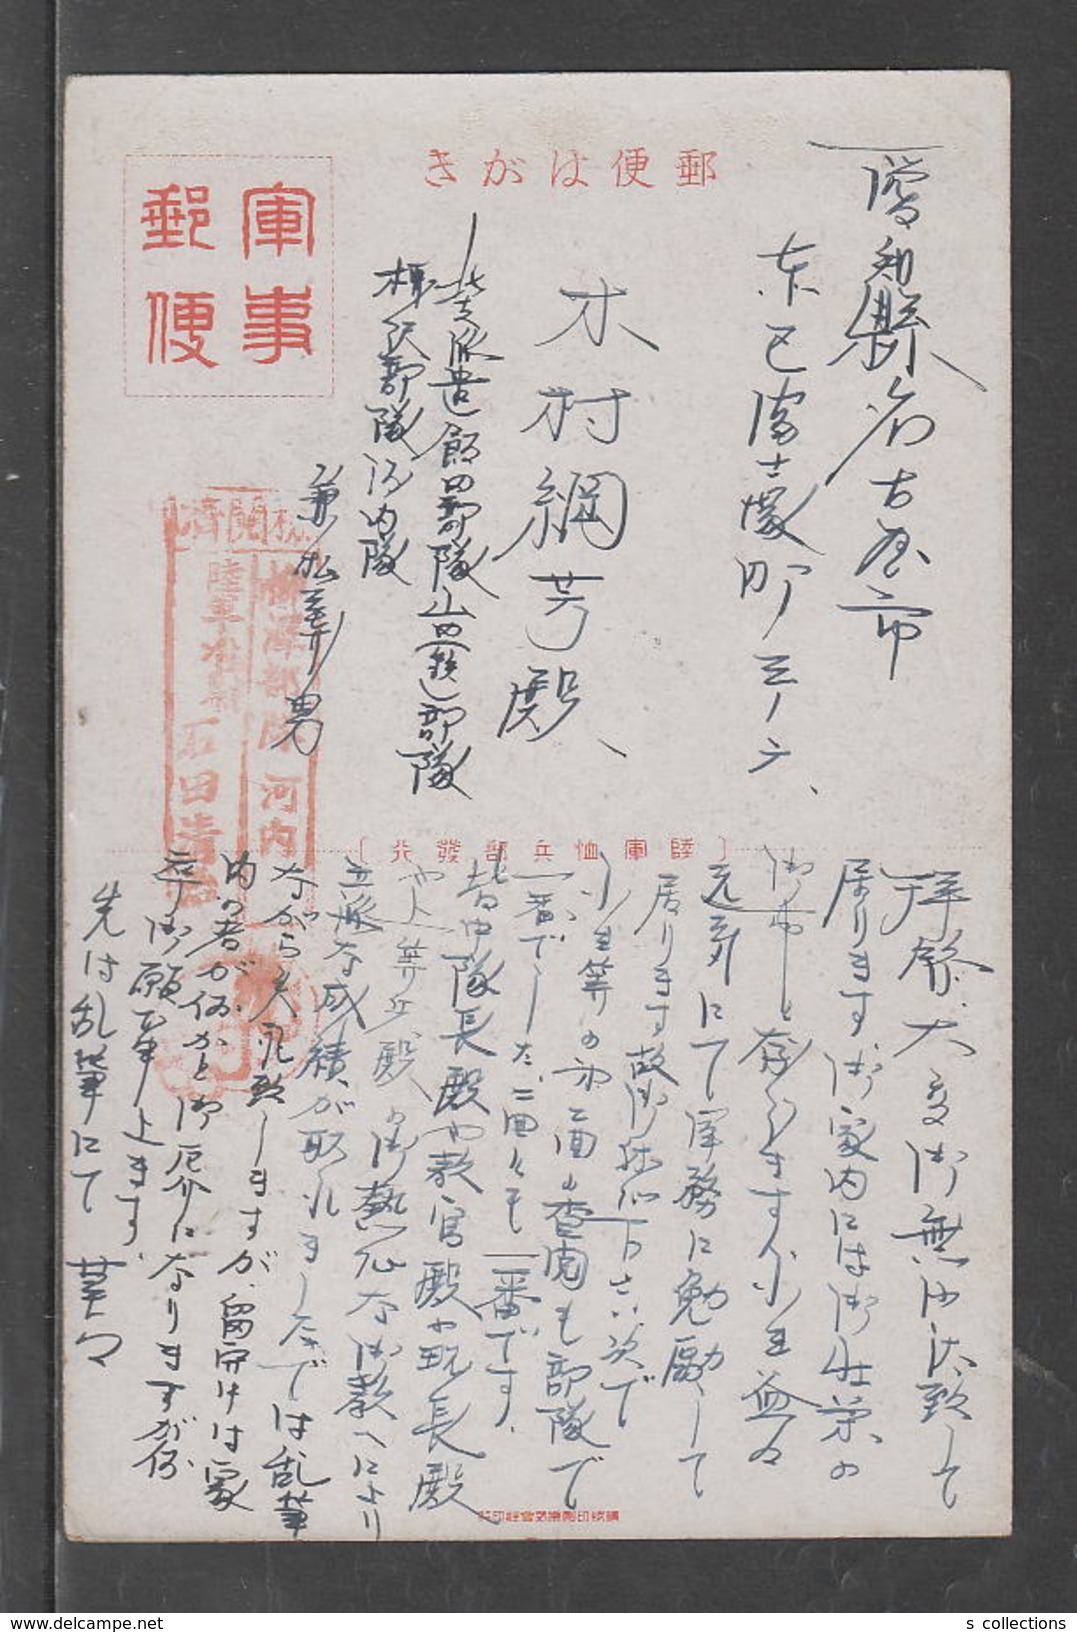 郵便はがき
軍事
郵便
愛知縣名古屋市
東区富士塚町三ノ六
木村綱芳殿
北支派遣飯田部隊山田(鉄)部隊
柳沢部隊河内隊
兼松義男
検閲済
柳澤部隊河内
陸軍
石田清
〔陸軍恤兵部發行〕
拝啓、大変御無沙汰致して
居ります。御家内には御壮栄の
御事と存じます。小生益々
元気にて軍務に勉励して
居ります故御休心下さい。次で
小生等の第二回の査閲も部隊で
一番でした、二回とも一番です。
皆中隊長殿や教官殿や班長殿
や上等兵殿の御熱心な御教へにより
立派な成績が取れました。では乱筆
ながら失礼致しますが、留守中は家
内の者が何かと御厄介になりますが何
卒御願い申上ます。
先は乱筆にて 草々